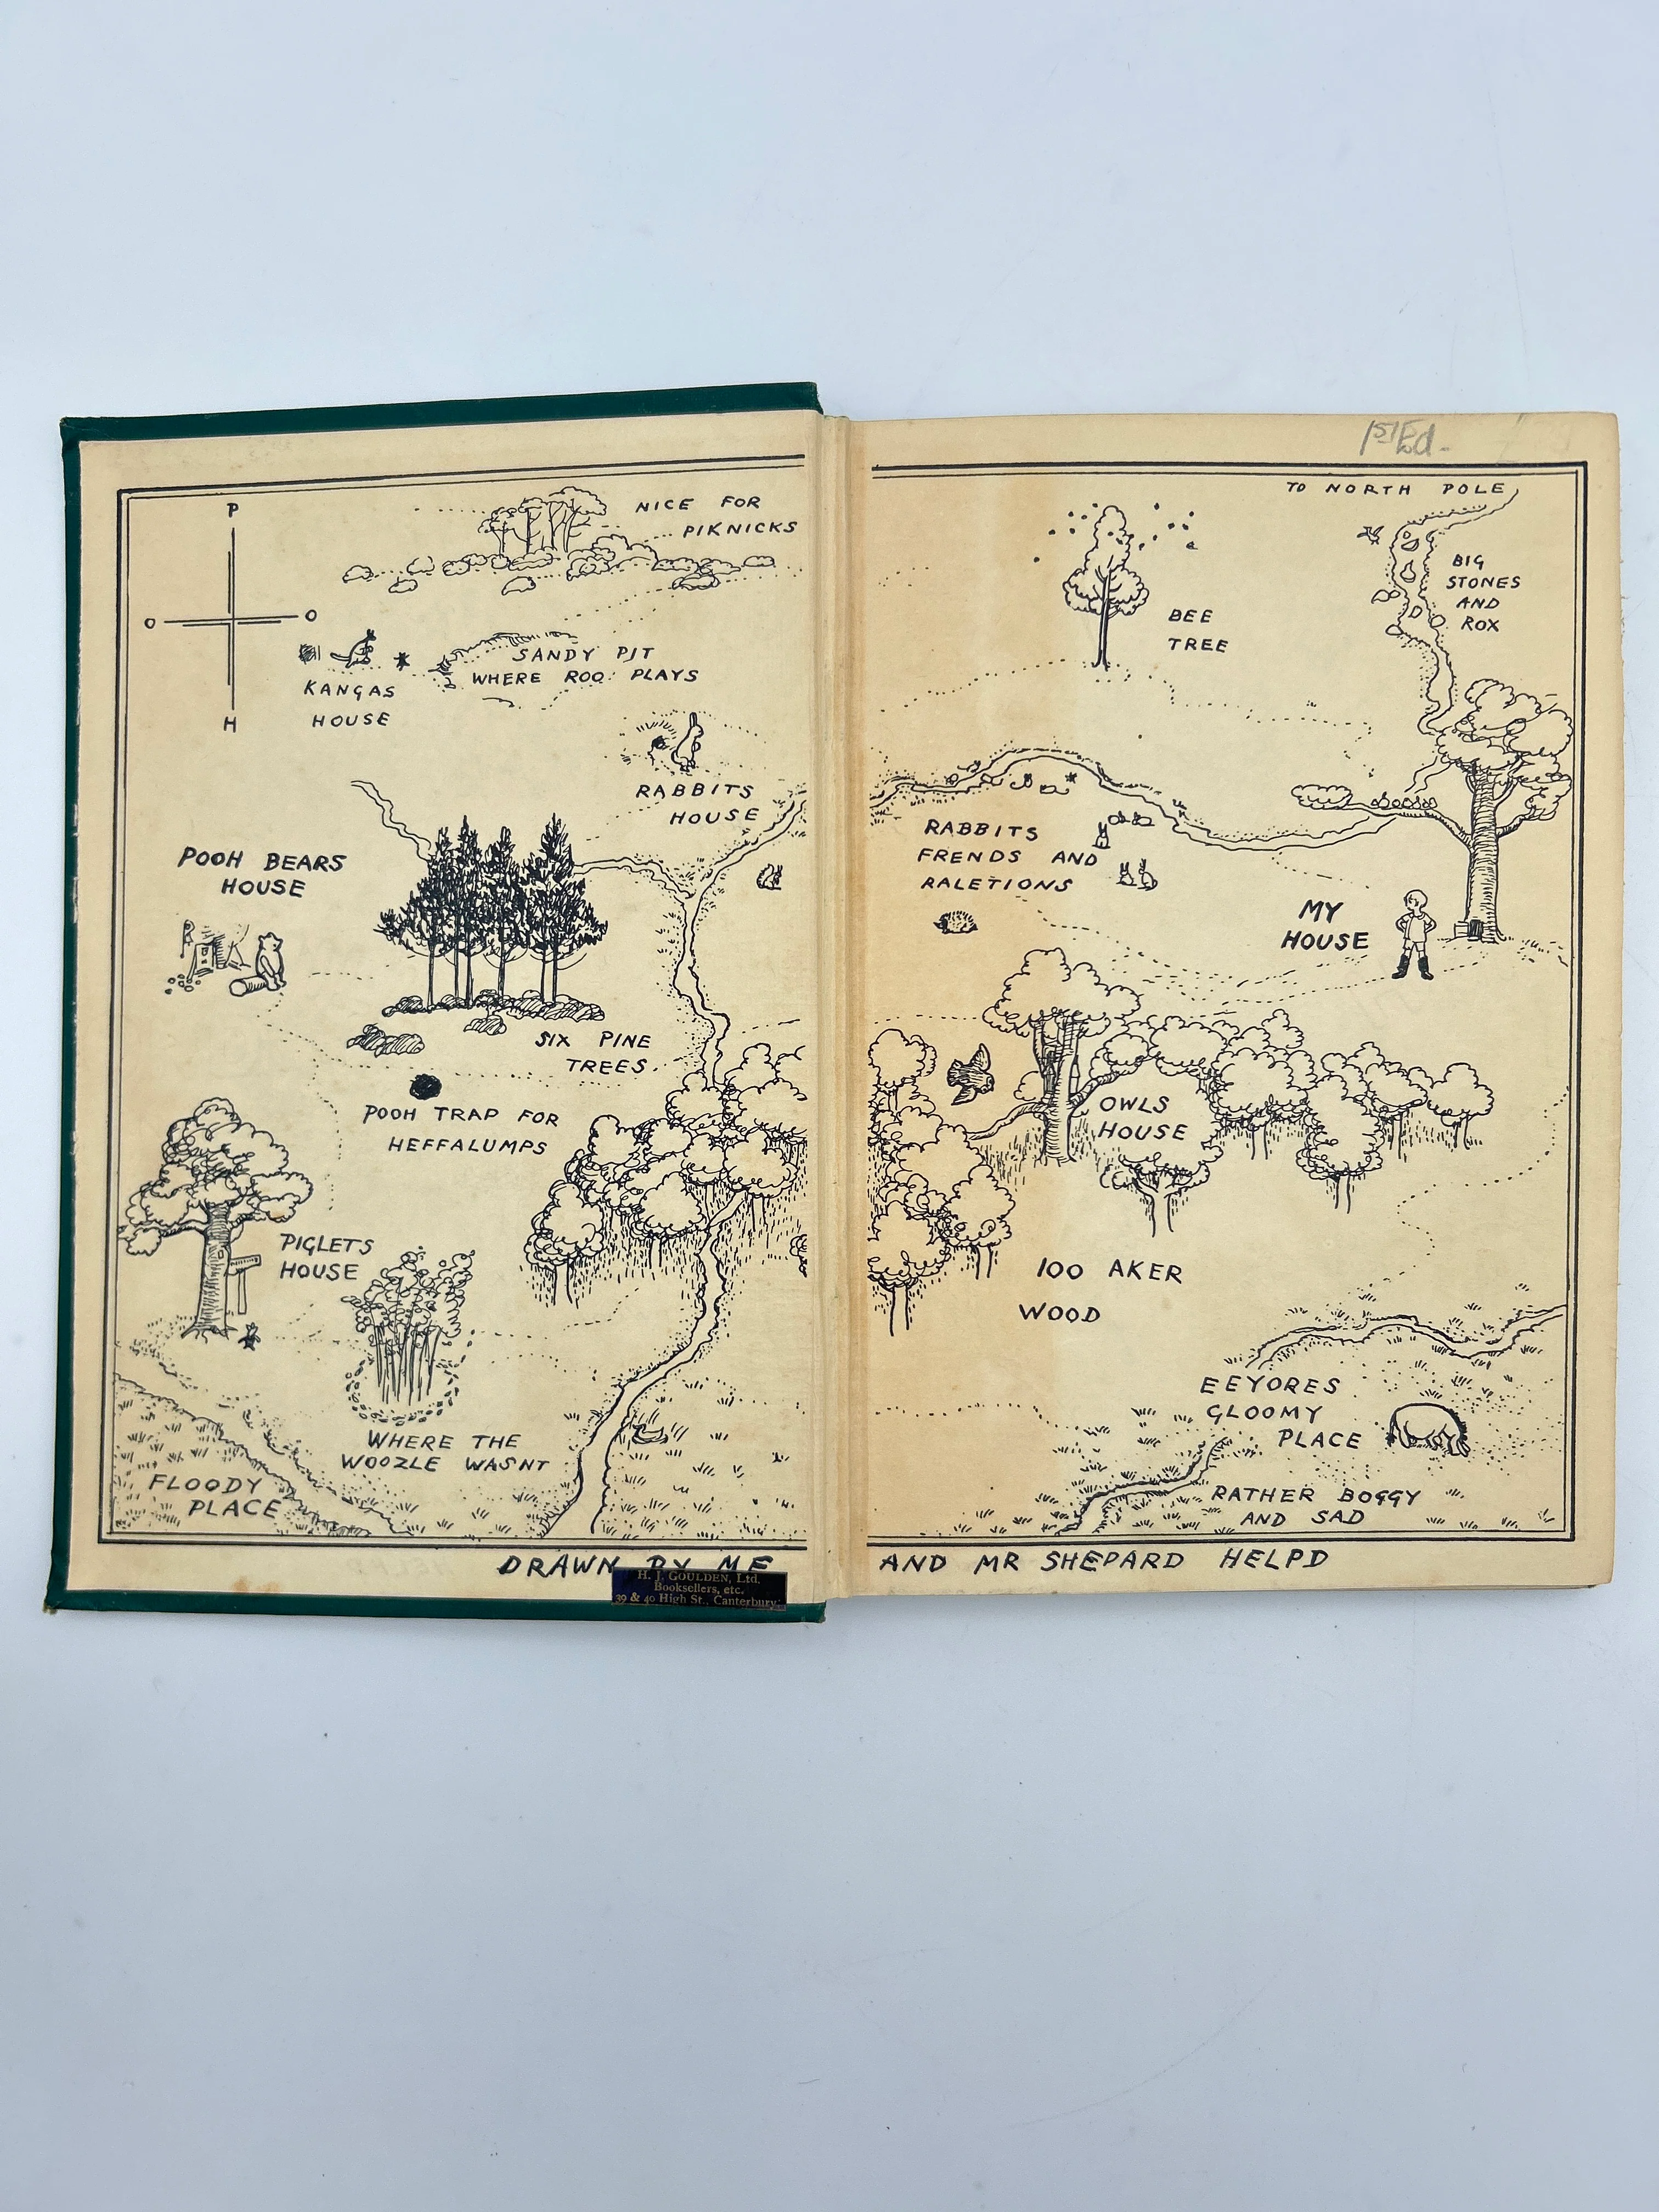 1st Ed.
P
O
O
H
NICE FOR
PIKNICKS
KANGAS
HOUSE
SANDY PIT
WHERE ROO PLAYS
RABBITS
HOUSE
POOH BEARS
HOUSE
SIX PINE
TREES.
POOH TRAP FOR
HEFFALUMPS
PIGLETS
HOUSE
WHERE THE
WOOZLE WASNT
FLOODY
PLACE
DRAWN BY ME
H. J. GOULDEN, Ltd.
Booksellers, etc.
39 & 40 High St., Canterbury.
TO NORTH POLE
BIG
STONES
AND
ROX
BEE
TREE
RABBITS
FRENDS AND
RALETIONS
MY
HOUSE
OWLS
HOUSE
100 AKER
WOOD
EEYORES
GLOOMY
PLACE
RATHER BOGGY
AND SAD
AND MR SHEPARD HELPD